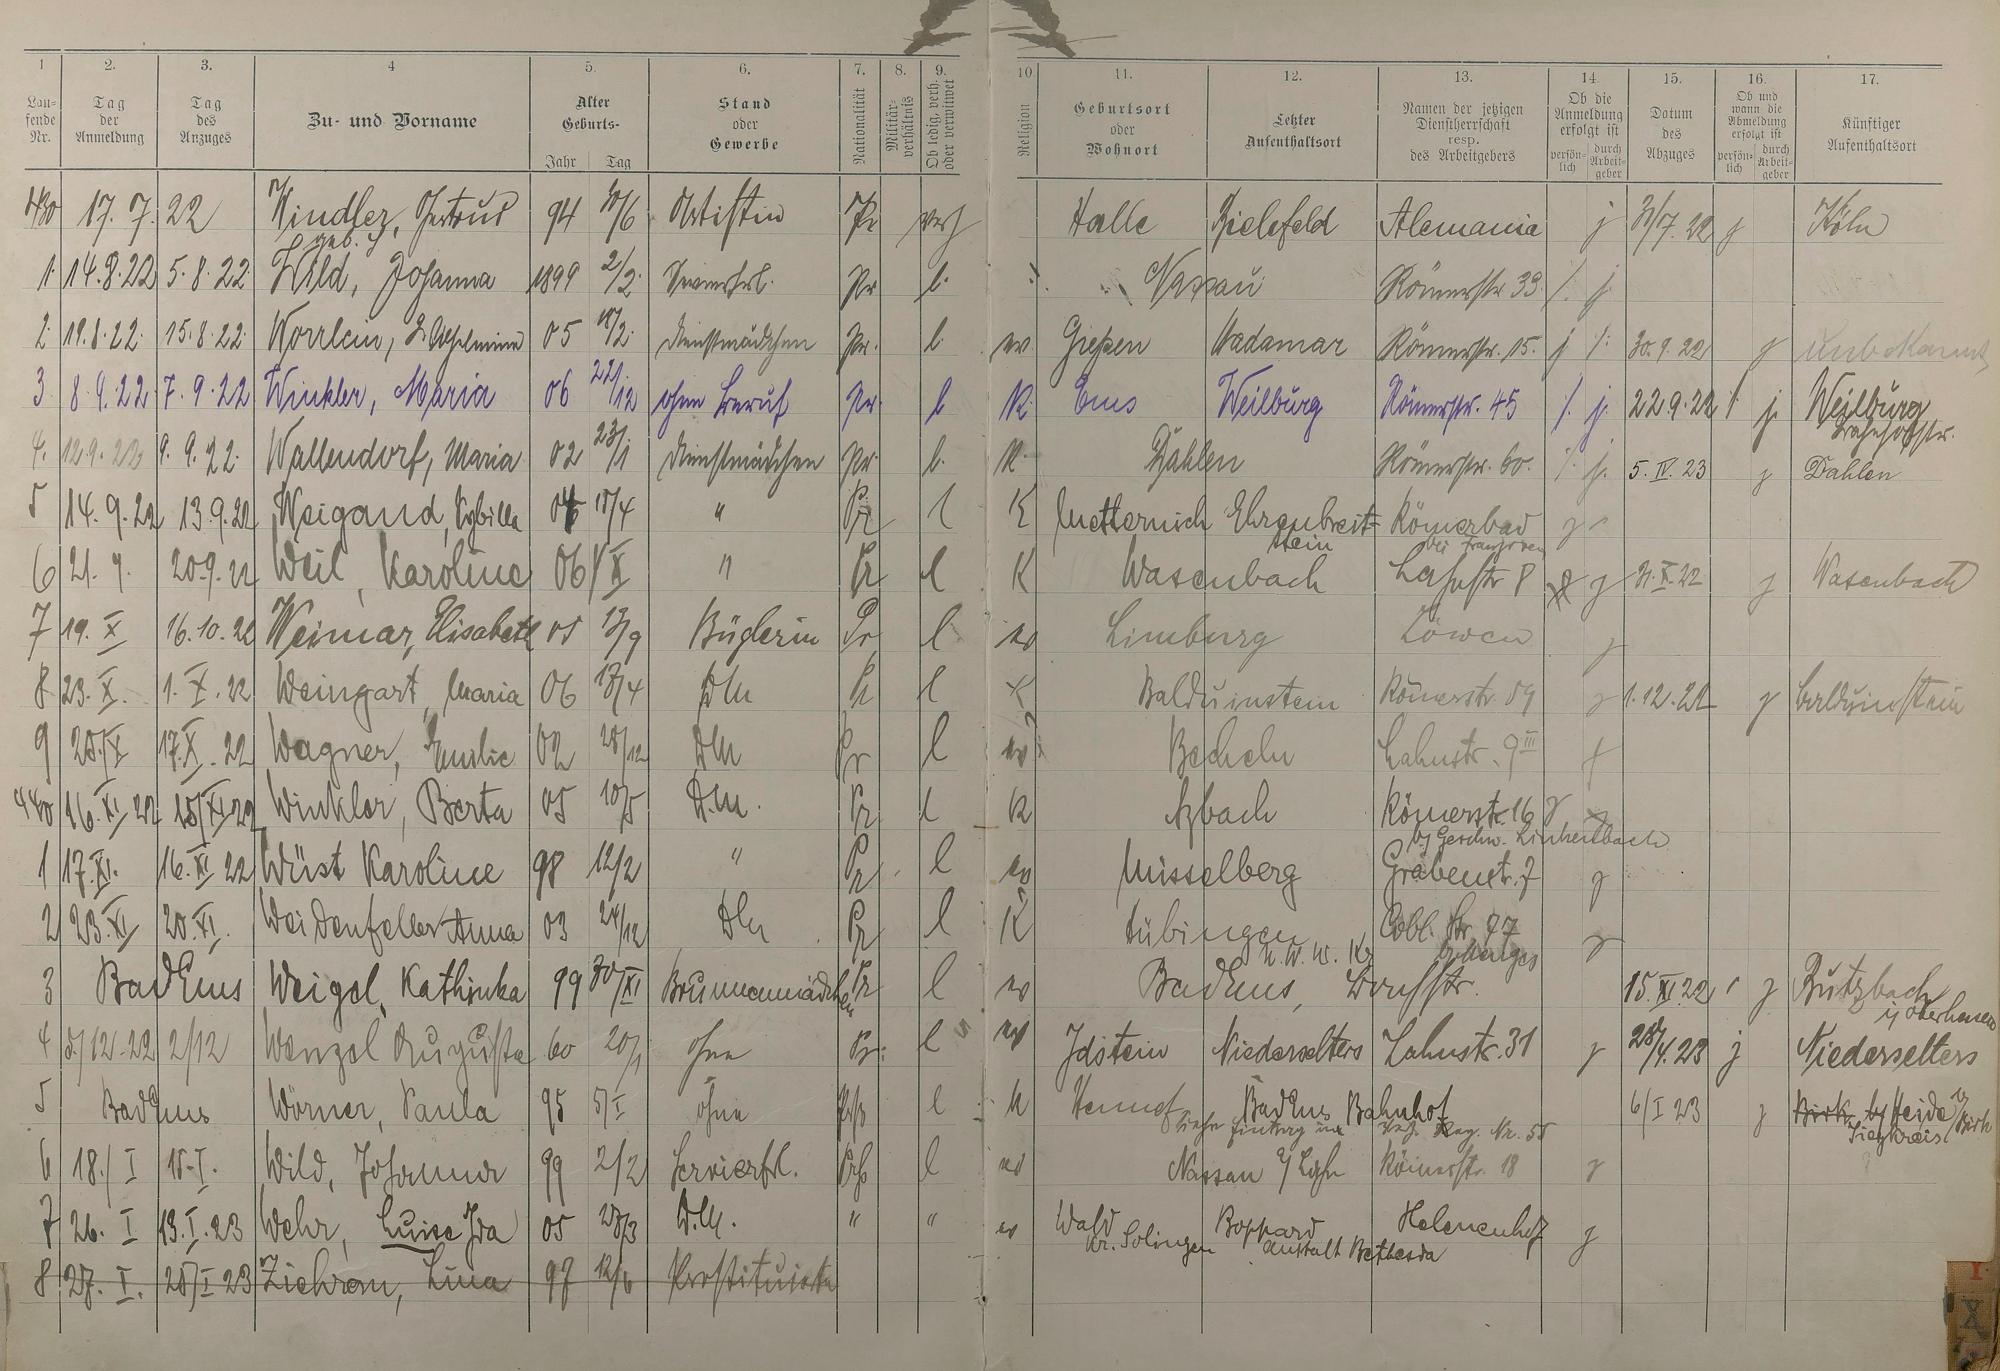 1 2. 3. 4 5. 6. 7. 8. 9. 10 11. 12. 13. 14 15. 16. 17.
Lau-fende Nr. Tag der Anmeldung Tag des Anzuges Zu- und Vorname Alter Geburts- Jahr Tag Stand oder Gewerbe Nationalität Militär-verhältnis Ob ledig, verh. oder verwitwet Religion Geburtsort oder Wohnort Letzter Aufenthaltsort Namen der jetzigen Dienstherrschaft resp. des Arbeitgebers Ob die Anmeldung erfolgt ist persön-lich durch Arbeit-geber Datum des Abzuges Ob und wann die Abmeldung erfolgt ist persön-lich durch Arbeit-geber Künftiger Aufenthaltsort
430 17. 7. 22 Windler, Gertrud geb. 94 6 Artistin Pr verh Halle Bielefeld Alemania j 31/7. 22 j Köln
1. 14.8.22 5.8.22 Wild, Johanna 1899 2/2. Servierfrl. Pr l. Nassau Römerstr 33 /. j.
2. 19.8.22. 15.8.22 Worrlein, Wilhelmine 05 18/2. Dienstmädchen Pr. l. ev. Gießen Hadamar Römerstr. 15. j /. 30.9.22 j unbekannt
3 8.9.22 7.9.22 Winkler, Maria 06 22/12 ohne Beruf Pr. l K. Ems Weilburg Römerstr. 45 /. j. 22.9.22 / j. Weilburg Bahnhofstr.
4. 12.9.22 9.9.22. Wallendorf, Maria 02 23/1 Dienstmädchen Pr. l. K. Dahlen Römerstr. 60. /. j. 5. IV. 23 j Dahlen
5 14.9.22 13.9.22 Weigand, Sybilla 04 18/4 " Pr l K Metternich Ehrenbreit-stein Römerbad j
6 21. 9. 20.9.22 Weil, Karoline 06 X " Pr l K Wasenbach Lahnstr 8 j 31.X.22 j Wasenbach
7 19. X 16.10.22 Weimar, Elisabeth 05 13/9 Büglerin Pr l ev Limburg Löwen j
8 23. X. 1. X. 22 Weingart, Maria 06 13/4 DM Pr l K Balduinstein Römerstr. 59 j 1.12.22 j Balduinstein
9 25./X 17.X. 22 Wagner, Emilie 02 28/12 DM Pr l ev Becheln Lahnstr. 9 III j
440 16. XI 22 15/XI 22 Winkler, Berta 05 10/5 D.M. Pr l K Atzbach Römerstr. 16 j
1 17. XI. 16. XI 22 Wüst Karoline 98 12/2 " Pr l ev Misselberg Grabenstr. 7 j
2 23. XI 20. XI. Weidenfeller Anna 03 24/12 DM Pr l K Hübingen U.W.W. Kr Cobl. Str. 97 j
3 Bad Ems Weigel, Kathinka 99 30/XI Brunnenmädchen Pr l ev Bad Ems, Dorfstr. 15. XI. 22 j Butzbach i/ Oberhessen
4 5/12-22 2/12 Wenzel Augusta 60 20/1 ohne Pr. l ev Idstein Niederselters Lahnstr. 31 j 28/4. 23 j Niederselters
5 Bad Ems Wörner, Paula 95 5/I ohne Prß l K Hennef Bad Ems Bahnhof 6/I 23 j Birk by Heide Siegkreis
siehe Eintrag im Reg. Nr. 55
6 18./ I 15. I. Wild, Johanna 99 2/2 Servierfrl. l ev Nassau a/ Lahn Römerstr. 18 j
7 26. I 13. I. 23 Wehr, Luise Ida 05 28/3 D.M. " " ev Wald Kr. Solingen Boppard Anstalt Bethesda Helenenhof j
8 27. I. 25/I 23 Lina 97 12/6 Prostituierte